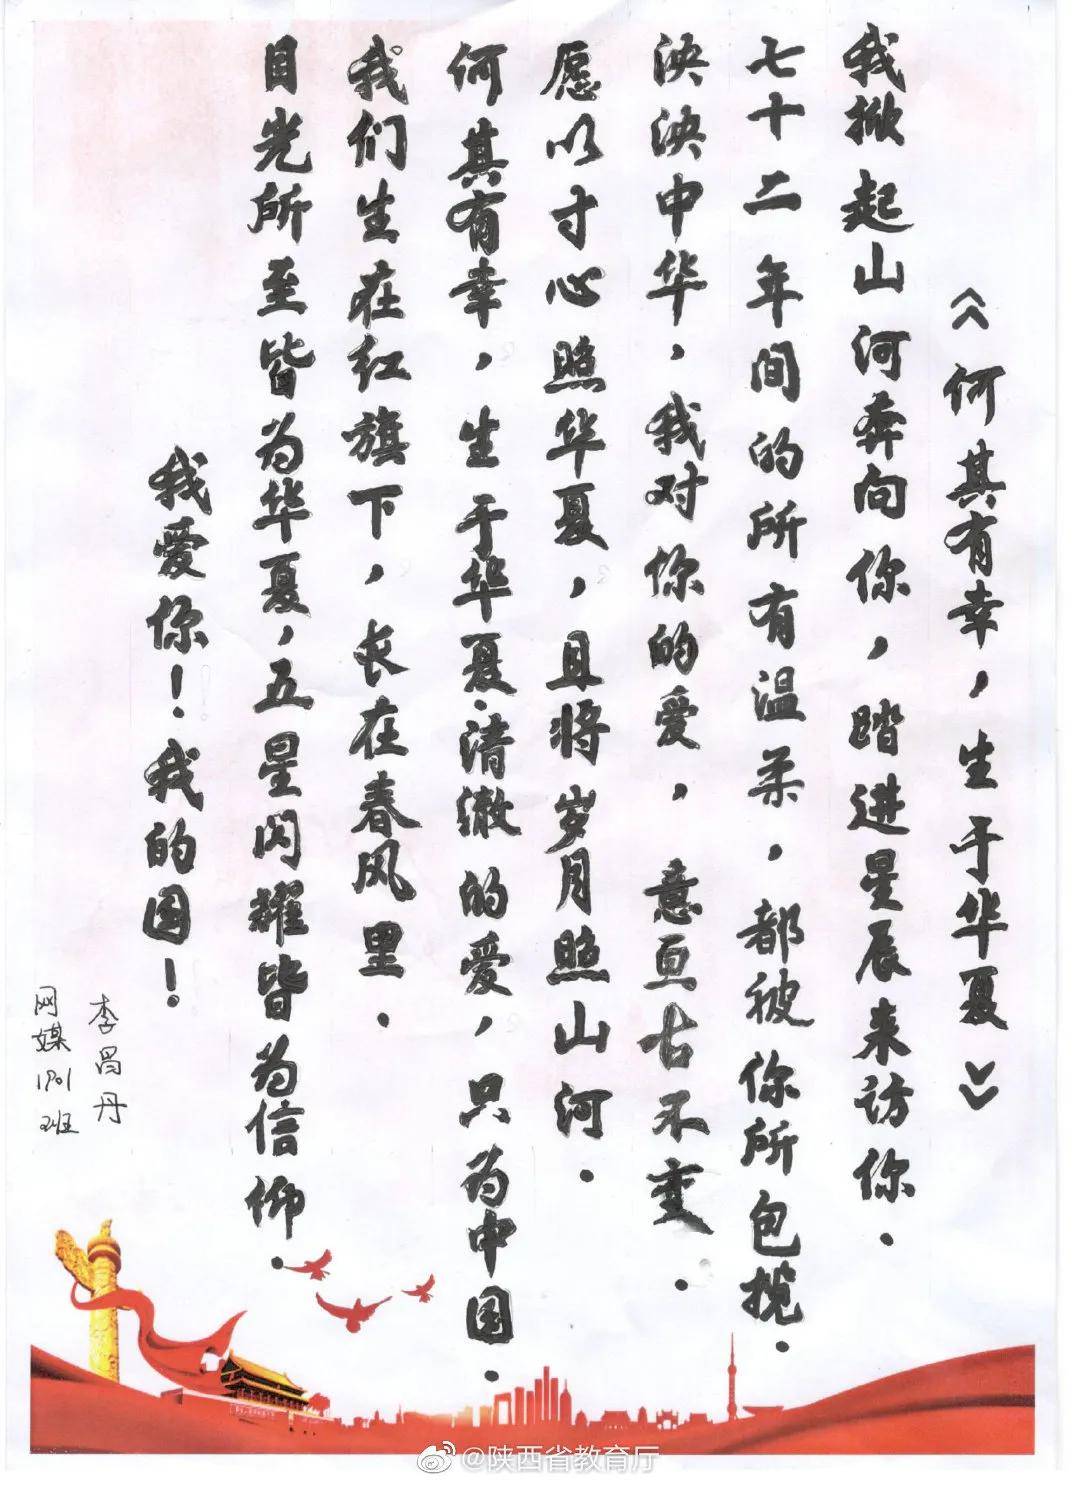 《何其有幸，生于华夏》
我掀起山河奔向你，踏进星辰来访你.
七十二年间的所有温柔，都被你所包揽.
泱泱中华，我对你的爱，意亘古不变.
愿以寸心照华夏，且将岁月照山河.
何其有幸，生于华夏.清澈的爱，只为中国.
我们生在红旗下，长在春风里.
目光所至皆为华夏，五星闪耀皆为信仰.
我爱你！我的国！
李昌丹
网媒1901班
@陕西省教育厅